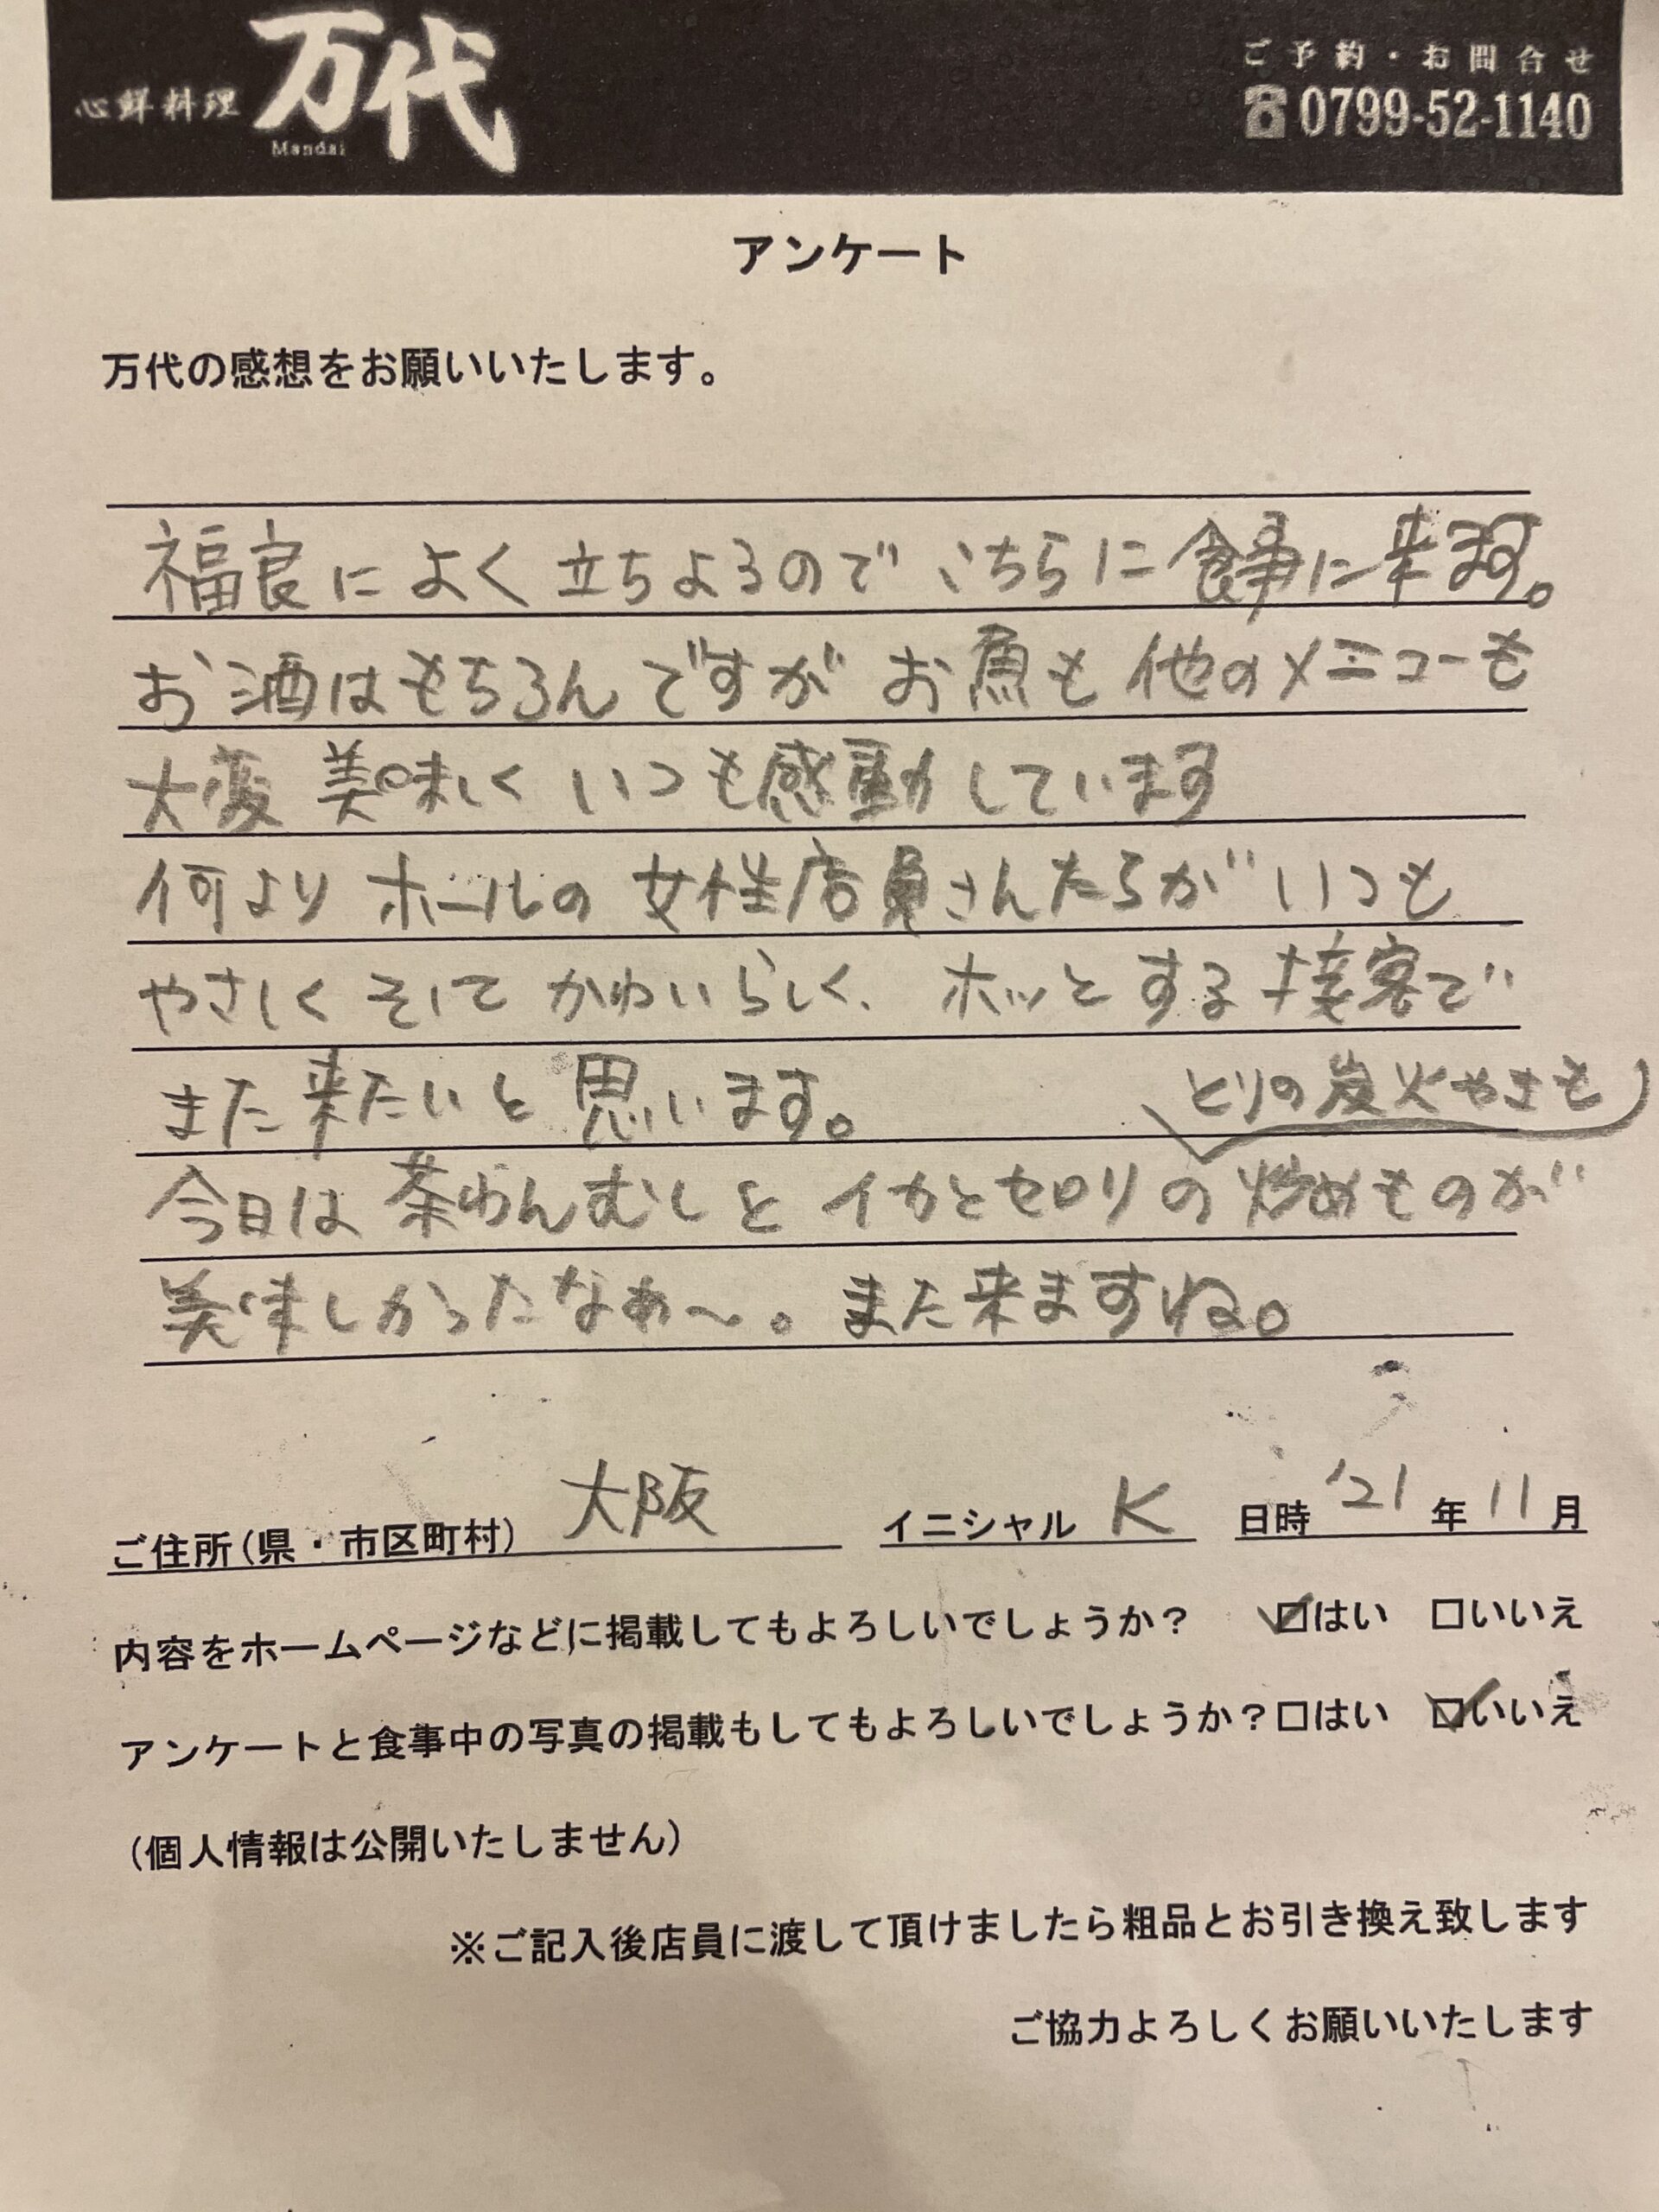 心鮮料理 万代
Mandai
ご予約・お問合せ
☎0799-52-1140
アンケート
万代の感想をお願いいたします。
福良によく立ちよるので こちらに食事に来ます。
お酒はもちろんですが お魚も他のメニューも
大変 美味しく いつも感動しています
何より ホールの 女性店員さんたちが いつも
やさしく そして かわいらしく、ホッとする接客で
また来たいと思います。
とりの炭火やきも
今日は 茶わんむしと イカとセロリの 炒めものが
美味しかったなぁ〜。また来ますね。
ご住所(県・市区町村) 大阪 イニシャル K 日時 '21 年 11 月
内容をホームページなどに掲載してもよろしいでしょうか？ ☑はい □いいえ
アンケートと食事中の写真の掲載もしてもよろしいでしょうか？□はい ☑いいえ
（個人情報は公開いたしません）
※ご記入後店員に渡して頂けましたら粗品とお引き換え致します
ご協力よろしくお願いいたします